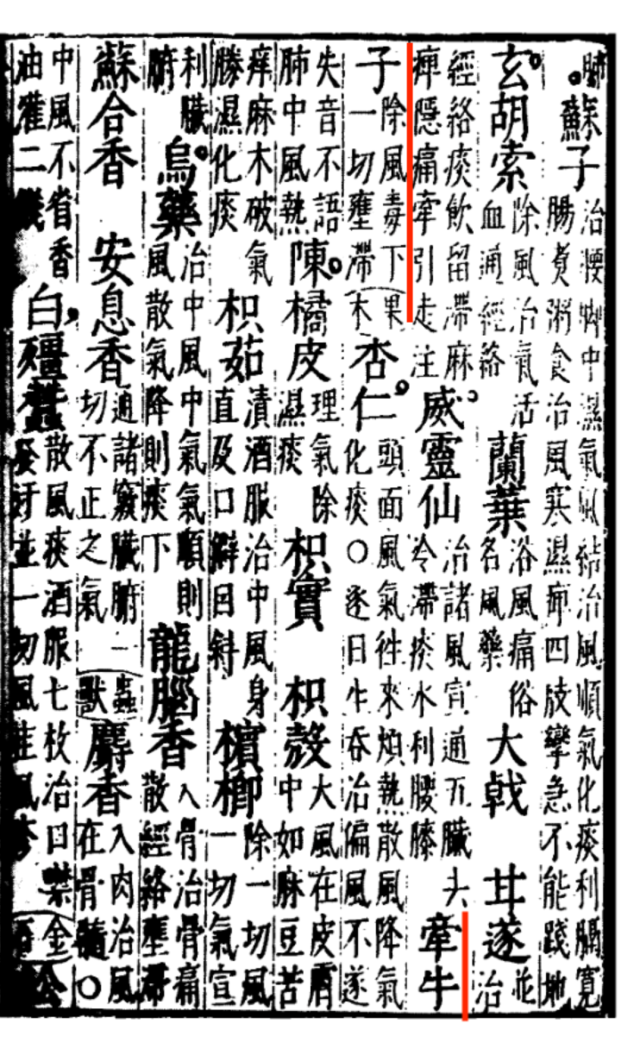 肺
蘇子治腰脚中濕氣風結治風順氣化痰利膈寬
腸煮粥食治風寒濕痹四肢攣急不能踐地
玄胡索除風治氣活
血通經絡
蘭葉浴風痛俗
名風藥
大戟 甘遂並
治
經絡痰飲留滯麻
痺隱痛牽引走注
威靈仙治諸風宣通五臟去
冷滯痰水利腰膝
牽牛
子除風毒下
一切壅滯
果
木
杏仁頭面風氣往來煩熱散風降氣
化痰○逐日生吞治偏風不遂
失音不語
肺中風熱
陳橘皮理氣除
濕痰
枳實 枳殼大風在皮膚
中如麻豆苦
痒麻木破氣
勝濕化痰
枳茹漬酒服治中風身
直及口僻目斜
檳榔除一切風
一切氣宣
利臟
腑
烏藥治中風中氣氣順則
風散氣降則痰下
龍腦香入骨治骨痛
散經絡壅滯
蘇合香 安息香通諸竅臟腑一
切不正之氣
蟲
獸
麝香入肉治風
在骨髓○
中風不省香
油灌二錢
白殭蠶散風痰酒服七枚治口噤
發汗並一切風疰風疹
金
石